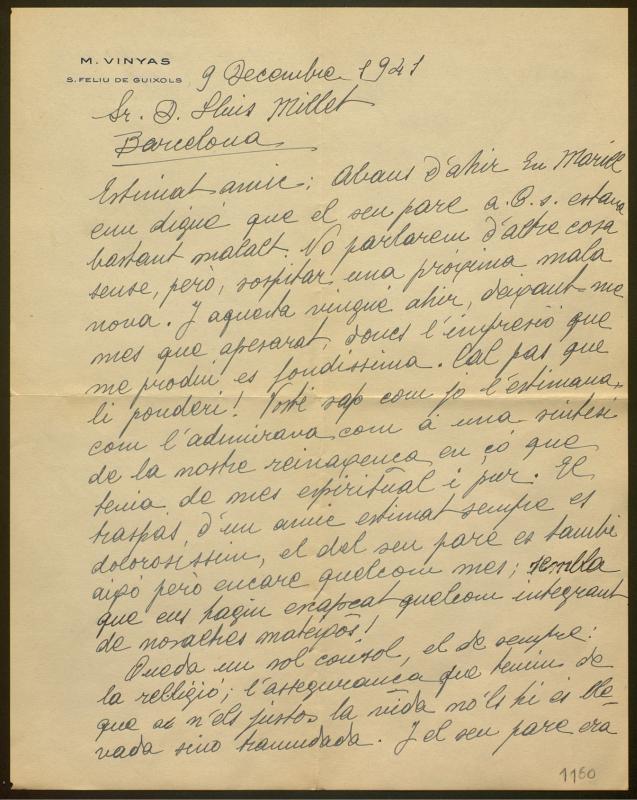 M. VINYAS
S. FELIU DE GUIXOLS
9 Decembre 1941
Sr. D. Lluis Millet
Barcelona
Estimat amic: Abans d'ahir En Marià
em digué que el seu pare a.B.s. estava
bastant malalt. No parlarem d'altre cosa
sense, però, sospitar una proxima mala
nova. I aquesta vingué ahir, deixant-me
mes que apesarat, doncs l'impresió que
me produí es fondissima. Cal pas que
li ponderi! Vosté sap com jo l'estimava,
com l'admirava com á una síntesi
de la nostre reinaxença en ço que
tenia de mes espiritual i pur. El
traspas d'un amic estimat sempre es
dolorosissim, el del seu pare es també
aixó però encare quelcom mes; sembla
que ens hagin escapçat quelcom integrant
de nosaltres mateixos!
Queda un sol consol, el de sempre:
la relligió; l'assegurança que tenim de
que a n'els justos la vida no'ls hi es lle-
vada sino tramudada. I el seu pare era
1160